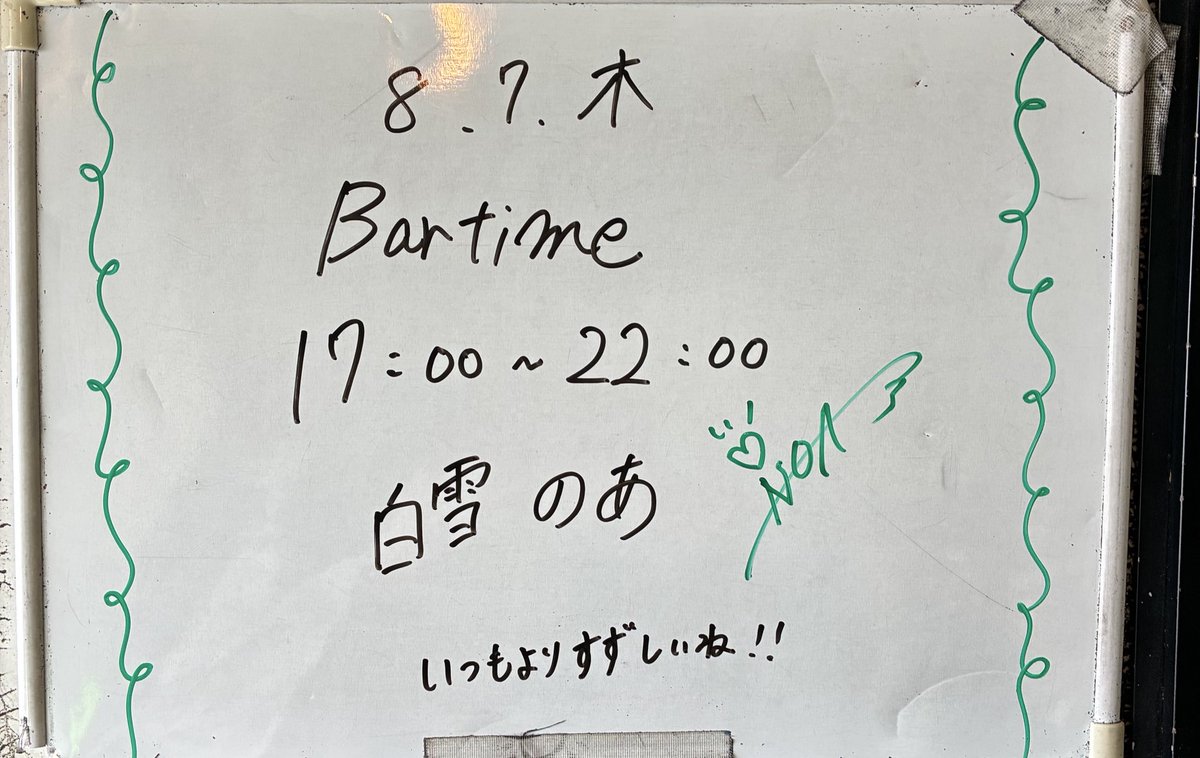 8.7.木
Bartime
17:00~22:00
白雪 のあ
NOA
いつもよりすずしいね!!